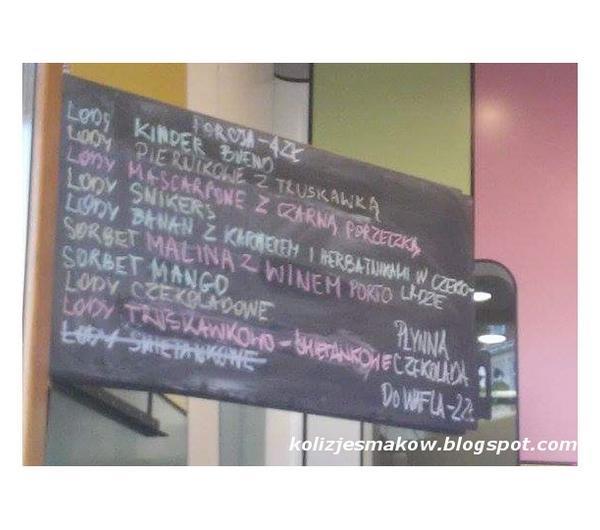 PORCJA - 4ZŁ
LODY KINDER BUENO
LODY PIERNIKOWE Z TRUSKAWKĄ
LODY MASCARPONE Z CZARNĄ PORZECZKĄ
LODY SNIKERS
LODY BANAN Z KARMELEM I HERBATNIKAMI W CZEKO-
LADZIE
SORBET MALINA Z WINEM PORTO
SORBET MANGO
LODY CZEKOLADOWE
LODY TRUSKAWKOWO - ŚMIETANKOWE
LODY ŚMIETANKOWE
PŁYNNA
CZEKOLADA
DO WAFLA - 2ZŁ
kolizjesmakow.blogspot.com